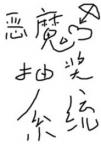 恶魔
抽奖
系统